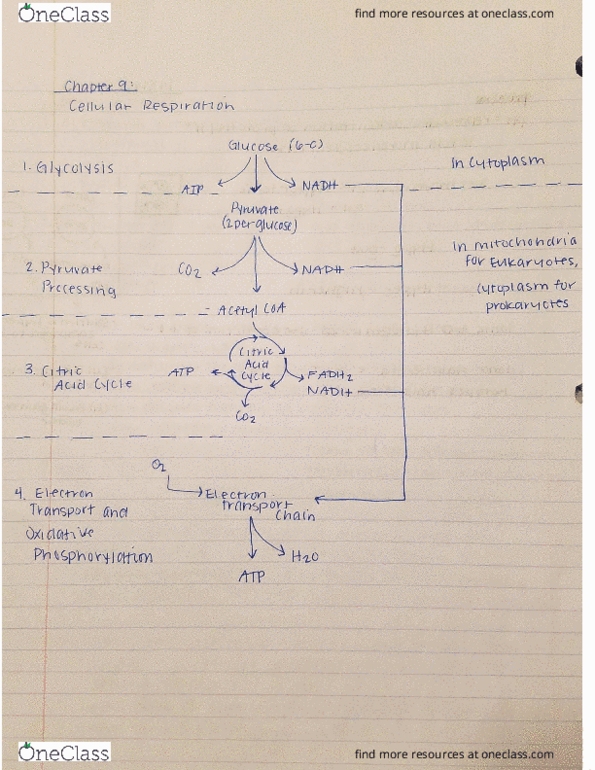 OneClass
find more resources at oneclass.com
Chapter 9:
Cellular Respiration
Glucose (6-C)
1. Glycolysis
In Cytoplasm
ATP
NADH
Pyruvate
(2 per glucose)
In mitochondria
for Eukaryotes,
cytoplasm for
prokaryotes
2. Pyruvate
Processing
CO2
NADH
Acetyl CoA
Citric
Acid
Cycle
3. Citric
Acid Cycle
ATP
FADH2
NADH
CO2
O2
4. Electron
Transport and
Oxidative
Phosphorylation
Electron
transport
chain
H2O
ATP
OneClass
find more resources at oneclass.com